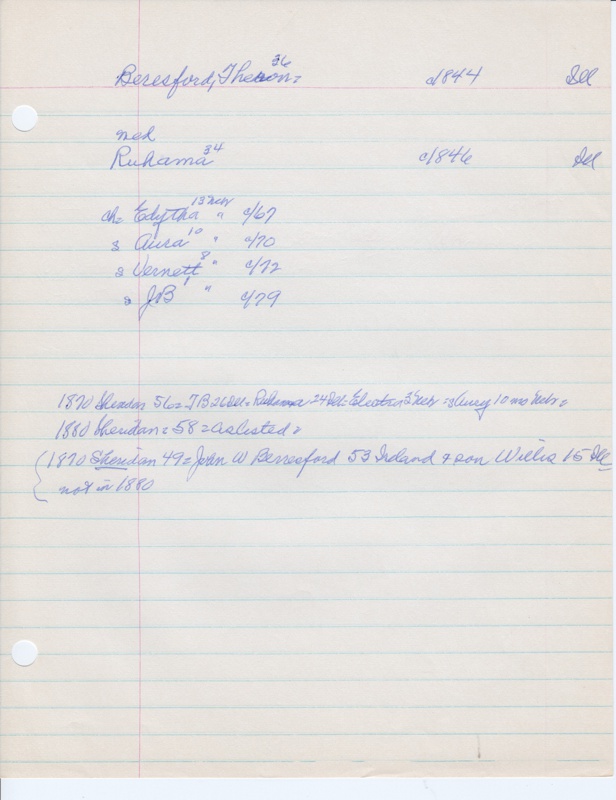 Beresford, Theron = 36 c1844 Ill
med
Ruhama 34 c1846 Ill
ch = Edytha 13 Nebr c/67
s Aura 10 " c/70
s Vernett 8 " c/72
s JB 1 " c/79
1870 Sheridan 56 = TB 26 Ill = Ruhama 24 Ill = 3 Nebr = 10 mo Nebr =
1880 Sheridan = 58 = as listed =
(1870 Sheridan 49 = John W Berresford 53 Ireland & son Willis 15 Ill
not in 1880